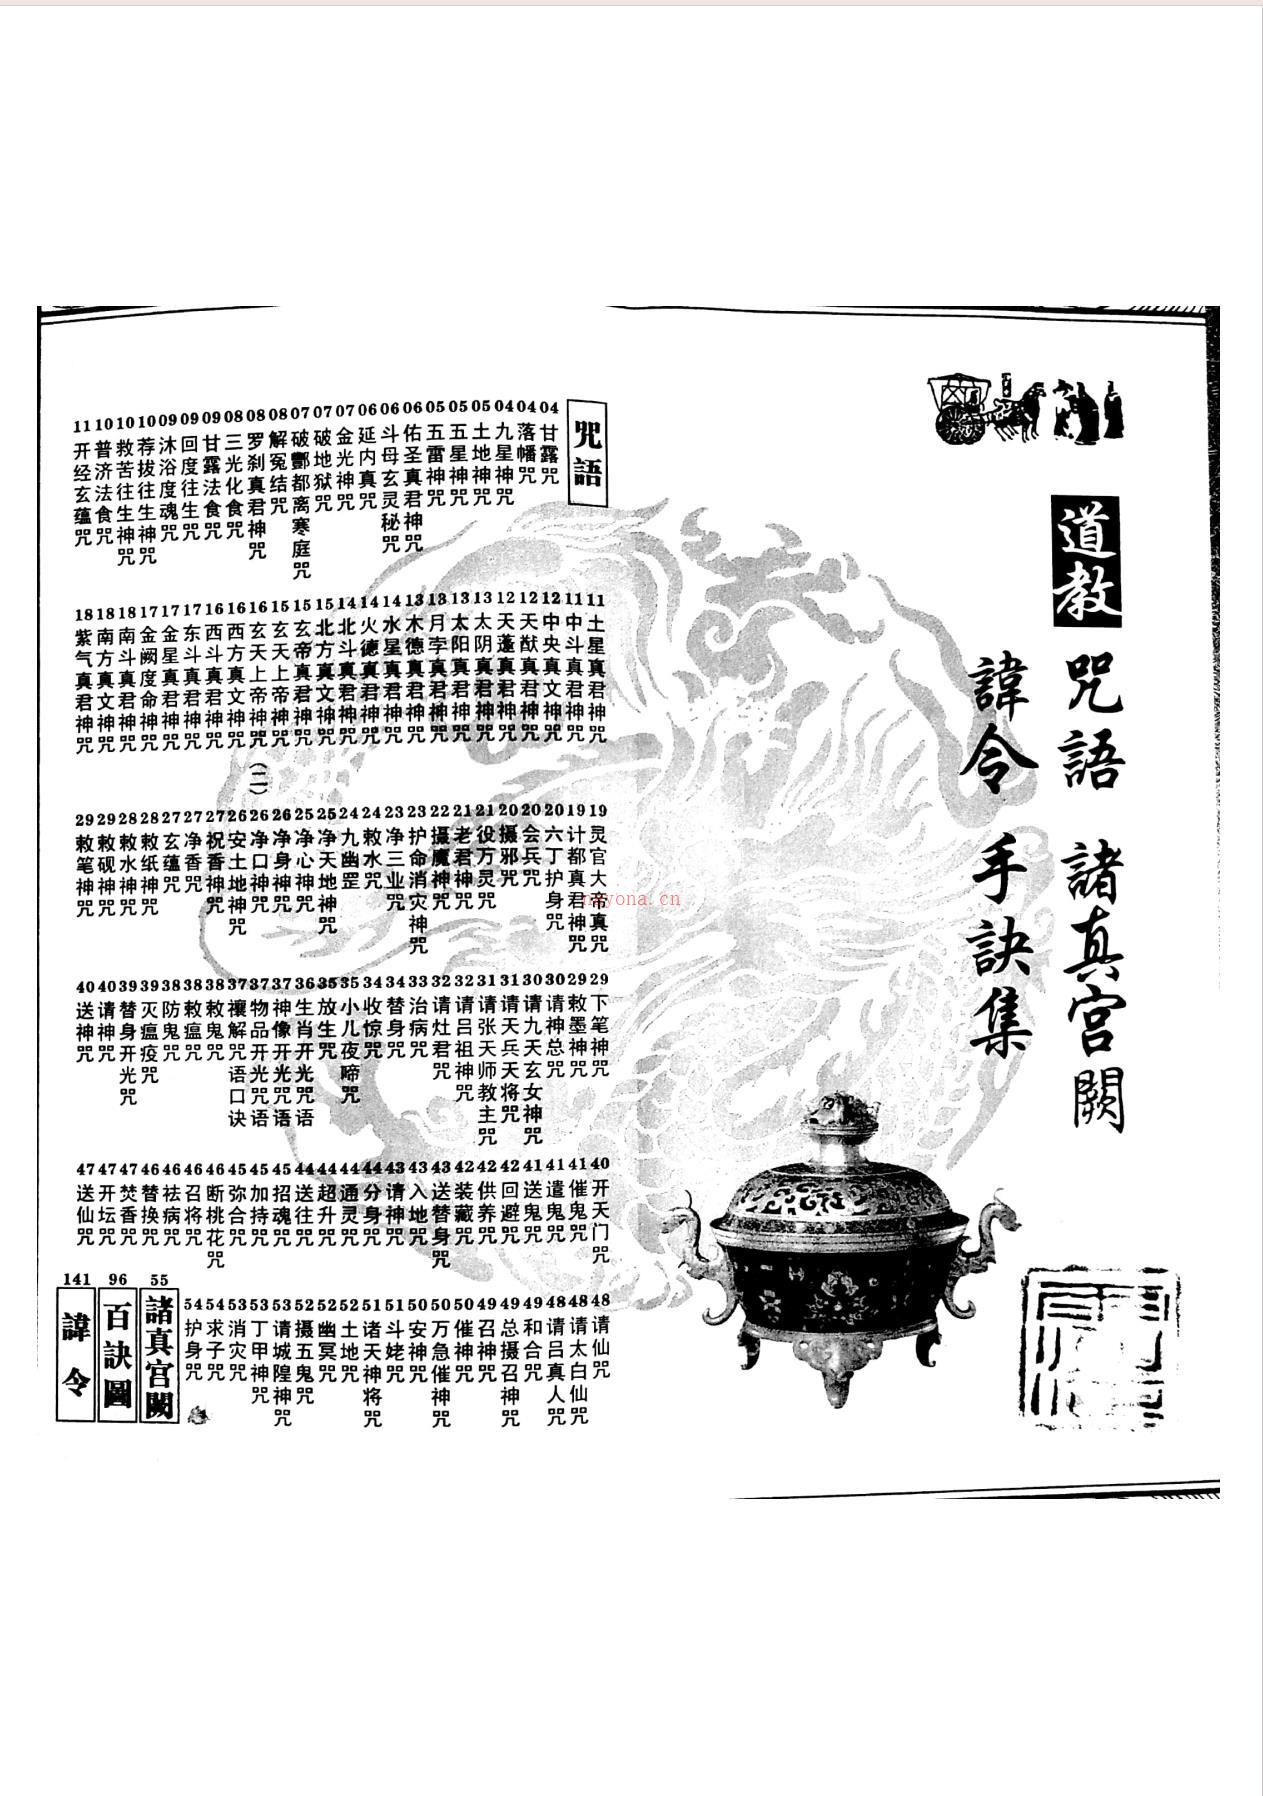 道教 咒語 諸真宫闕
諱令 手訣集
咒語
04 甘露咒
04 落幡咒
04 九星神咒
05 土地神咒
05 五星神咒
05 五雷神咒
06 佑圣真君神咒
06 斗母玄灵秘咒
06 延内真咒
07 金光神咒
07 破地狱咒
07 破酆都离寒庭咒
08 解冤结咒
08 罗刹真君神咒
08 三光化食咒
09 甘露法食咒
09 回度往生咒
09 沐浴度魂咒
10 荐拔往生神咒
10 救苦往生神咒
10 普济法食咒
11 开经玄蕴咒
11 土星真君神咒
11 中斗真君神咒
12 中央真文神咒
12 天猷真君神咒
12 天蓬真君神咒
13 太阴真君神咒
13 太阳真君神咒
13 月孛真君神咒
13 木德真君神咒
14 水星真君神咒
14 火德真君神咒
14 北斗真君神咒
15 北方真文神咒
15 玄帝真君神咒
15 玄天上帝神咒
16 玄天上帝神咒(二)
16 西方真文神咒
16 西斗真君神咒
17 东斗真君神咒
17 金星真君神咒
17 金阙度命神咒
18 南斗真君神咒
18 南方真文神咒
18 紫气真君神咒
19 灵官大帝真咒
19 计都真君神咒
20 六丁护身咒
20 会兵咒
20 摄邪咒
21 役万灵咒
21 老君神咒
22 摄魔神咒
23 护命消灾神咒
23 净三业咒
24 敕水咒
24 九幽罡
25 净天地神咒
25 净心神咒
26 净身神咒
26 净口神咒
26 安土地神咒
27 祝香神咒
27 净香咒
27 玄蕴咒
28 敕纸神咒
28 敕水神咒
29 敕砚神咒
29 敕笔神咒
29 下笔神咒
29 敕墨神咒
30 请神总咒
30 请九天玄女神咒
31 请天兵天将咒
31 请张天师教主咒
32 请吕祖神咒
32 请灶君咒
33 治病咒
34 替身咒
34 收惊咒
35 小儿夜啼咒
35 放生咒
36 生肖开光咒语
37 神像开光咒语
37 物品开光咒语
37 禳解咒语口诀
38 敕鬼咒
38 敕瘟咒
38 防鬼咒
39 灭瘟疫咒
39 替身开光咒
40 请神咒
40 送神咒
40 开天门咒
41 催鬼咒
41 遣鬼咒
41 送鬼咒
42 回避咒
42 供养咒
42 装藏咒
43 送替身咒
43 入地咒
43 请神咒
44 分身咒
44 通灵咒
44 超升咒
44 送往咒
45 招魂咒
45 加持咒
45 弥合咒
46 断桃花咒
46 召将咒
46 祛病咒
46 替换咒
47 焚香咒
47 开坛咒
47 送仙咒
48 请仙咒
48 请太白仙咒
48 请吕真人咒
49 和合咒
49 总摄召神咒
49 召神咒
50 催神咒
50 万急催神咒
50 安神咒
51 斗姥咒
51 诸天神将咒
52 土地咒
52 幽冥咒
52 摄五鬼咒
53 请城隍神咒
53 丁甲神咒
53 消灾咒
54 求子咒
54 护身咒
55 諸真宫闕
96 百訣圖
141 諱令
nayona.cn